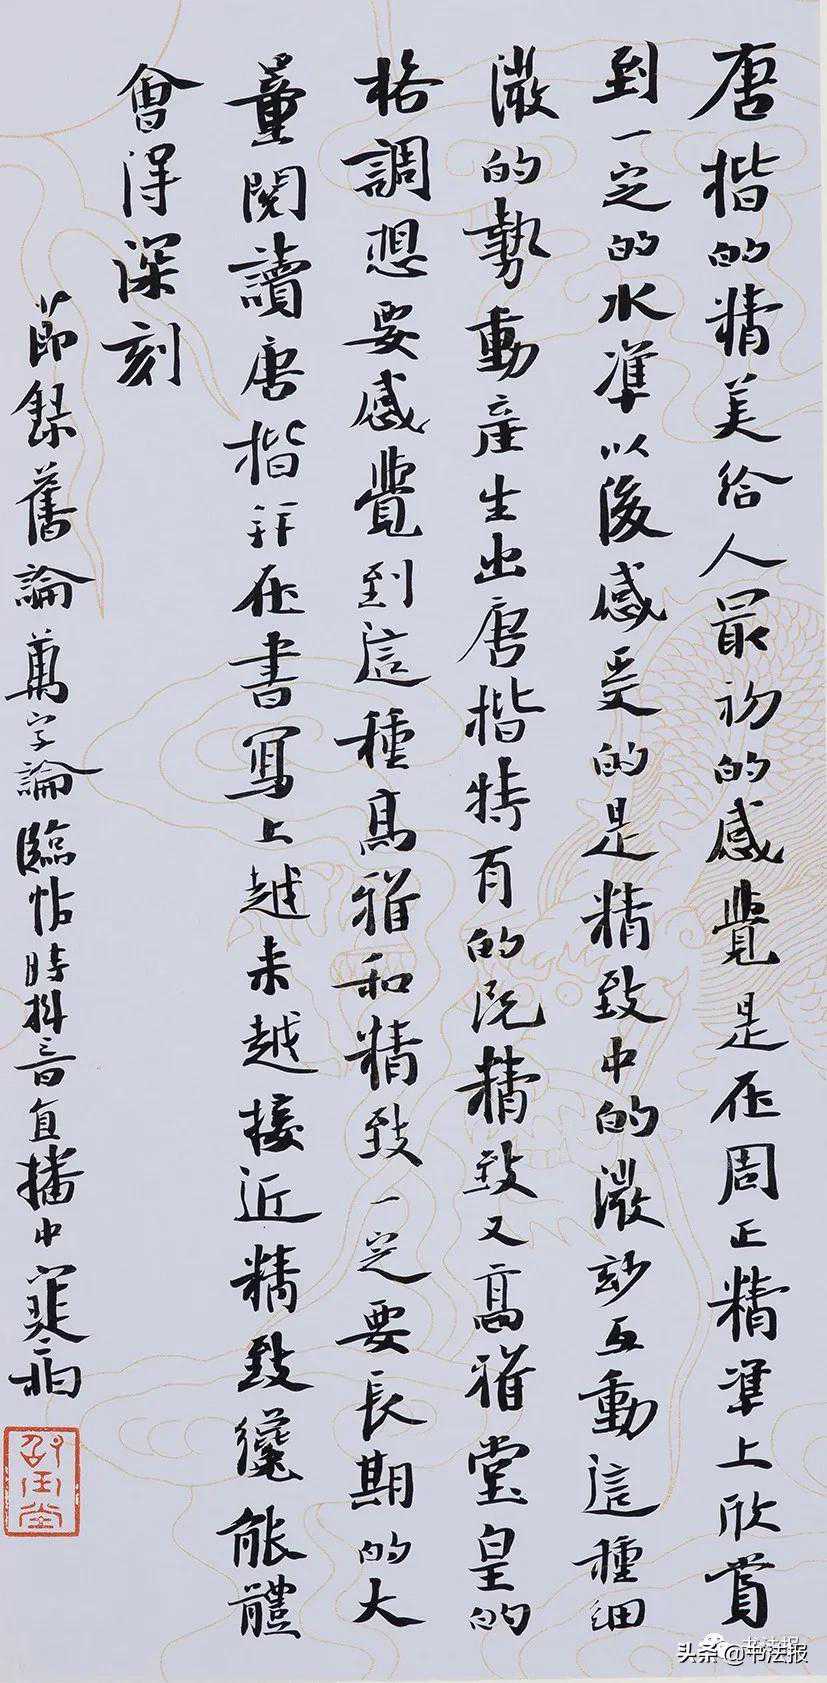 唐楷的精美給人最初的感覺是在周正精準上欣賞
到一定的水準以後感受的是精致中的微妙互動這種細
微的勢動產生出唐楷特有的既精致又高雅堂皇的
格調想要感覺到這種高雅和精致一定要長期的大
量閱讀唐楷并在書寫上越来越接近精致纔能體
會得深刻
節錄舊論萬字論臨帖時抖音直播中寔
头条@书法报
书法报